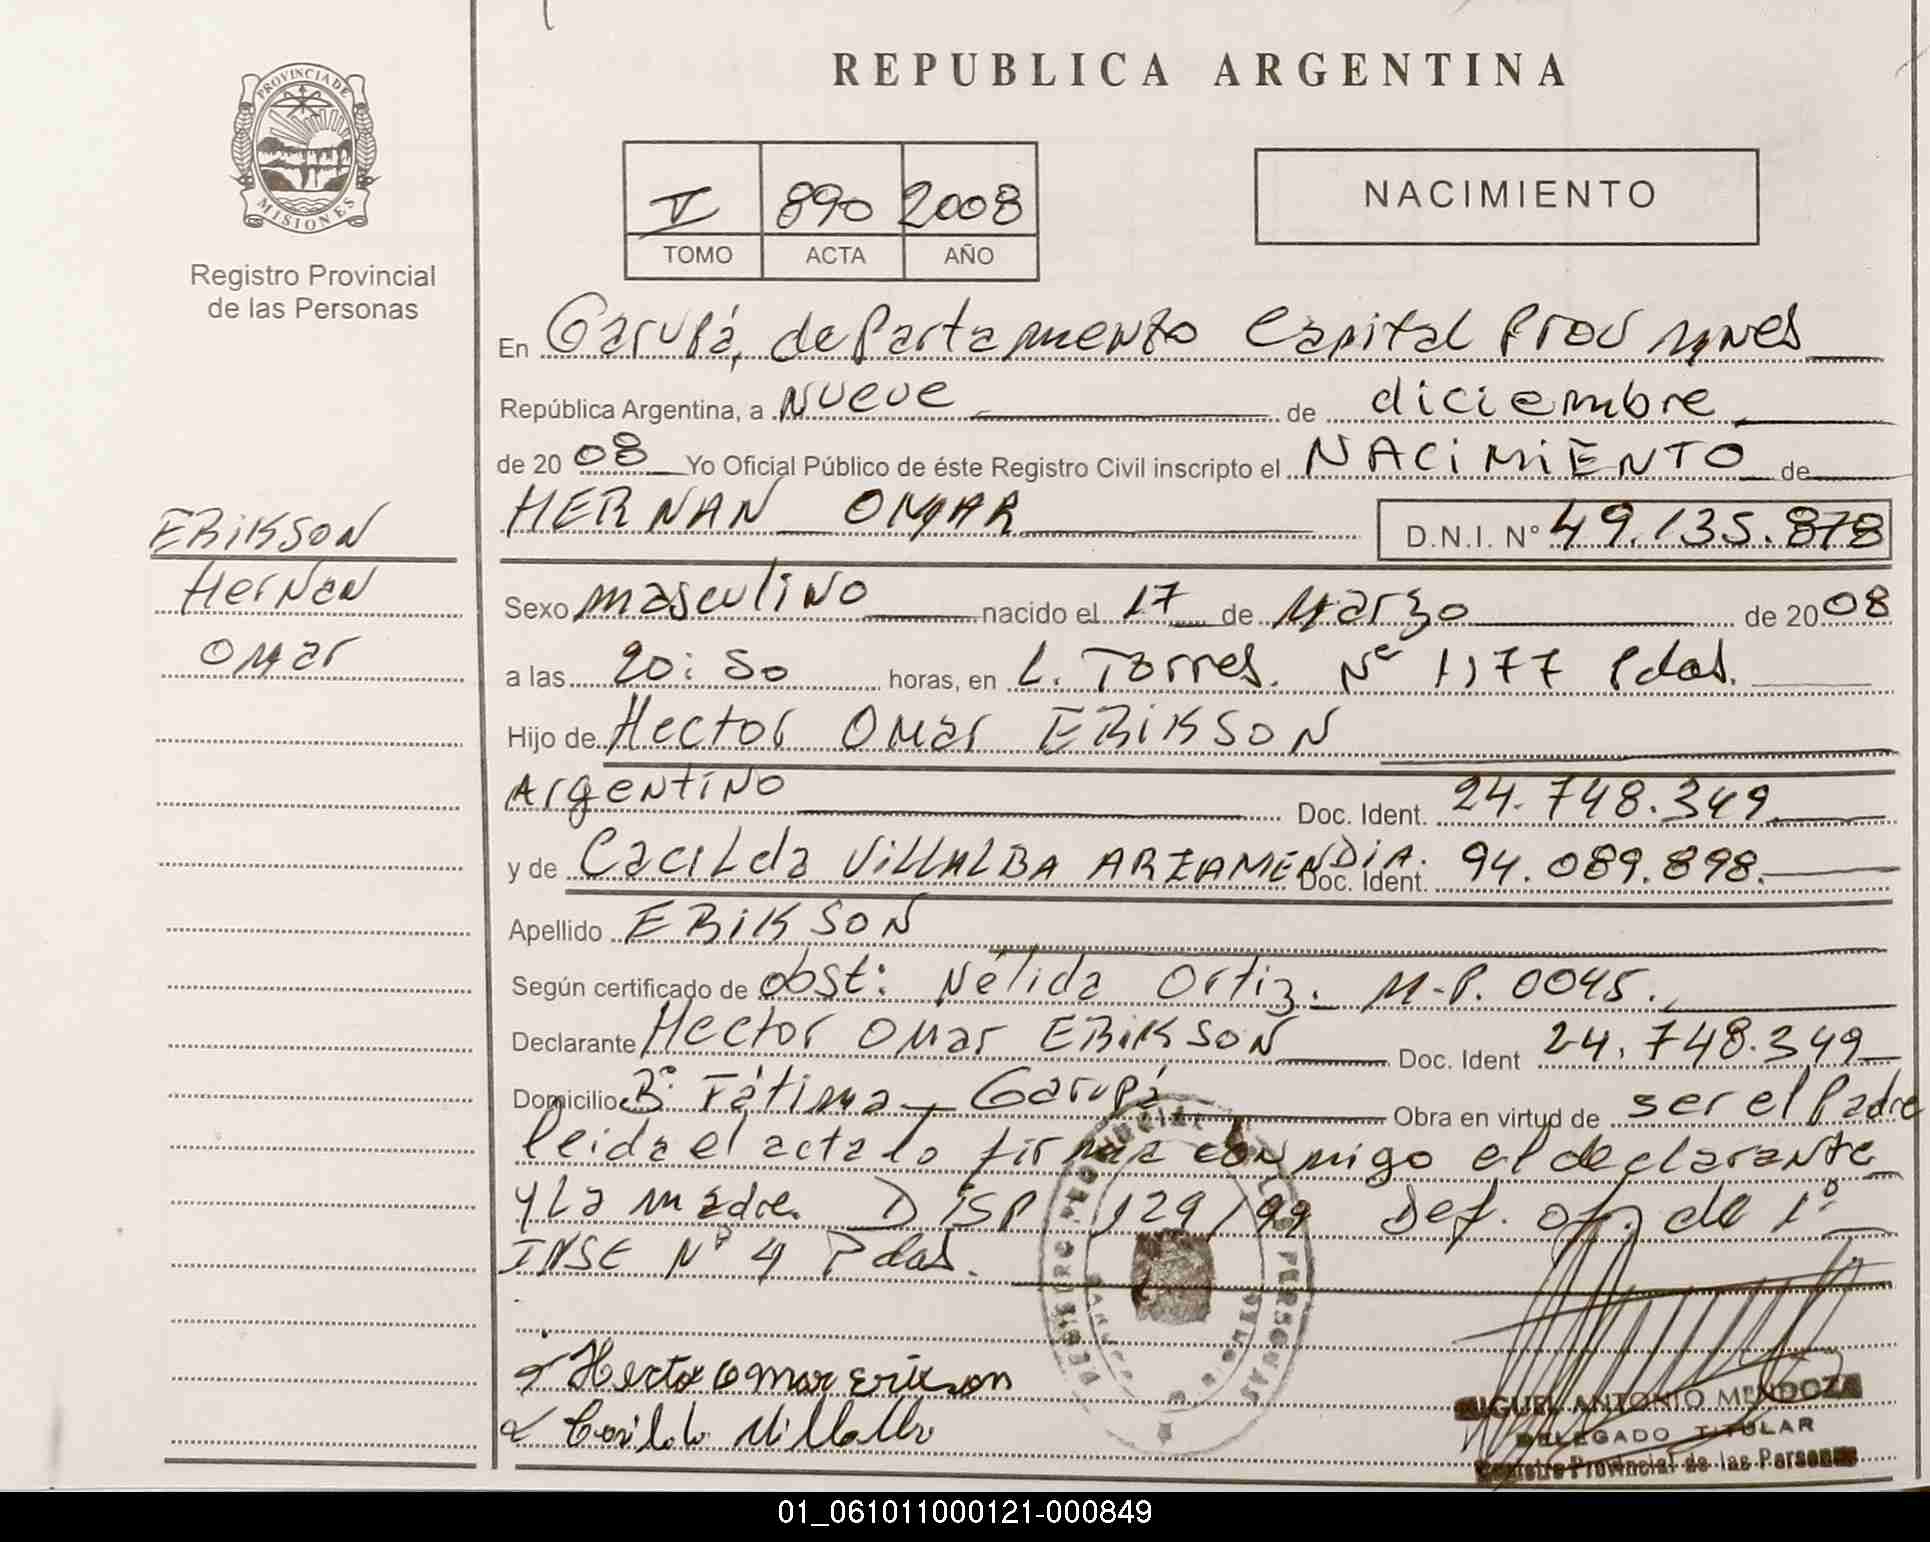 PROVINCIA DE
MISIONES
Registro Provincial
de las Personas
ERIKSON
HerNaN
OMar
REPUBLICA ARGENTINA
V 890 2008
TOMO ACTA AÑO
NACIMIENTO
En Garupá, departamento Capital Prov Mnes
República Argentina, a Nueve de diciembre
de 20 08 Yo Oficial Público de éste Registro Civil inscripto el NACIMIENTO de
HERNAN OMAR D.N.I. N° 49.135.878
Sexo masculino nacido el 17 de Marzo de 20 08
a las 20:50 horas, en L. Torres. N° 1177 Pdas.
Hijo de Hector Omar ERIKSON
Argentino Doc. Ident. 24.748.349
y de Cacilda VILLALBA ARZAMENDIA. Doc. Ident. 94.089.898.
Apellido ERIKSON
Según certificado de obst: Nélida Ortiz. M.P. 0045.
Declarante Hector Omar ERIKSON Doc. Ident 24.748.349
Domicilio B° Fátima - Garupá Obra en virtud de ser el Padre
leida el acta lo firma conmigo el declarante
y La madre. DISP 129/99 Def. of. de 1°
INSt N° 4 Pdas.
Hector Omar Erikson
Casilda Villalba
MIGUEL ANTONIO MENDOZA
DELEGADO TITULAR
Registro Provincial de las Personas
01_061011000121-000849